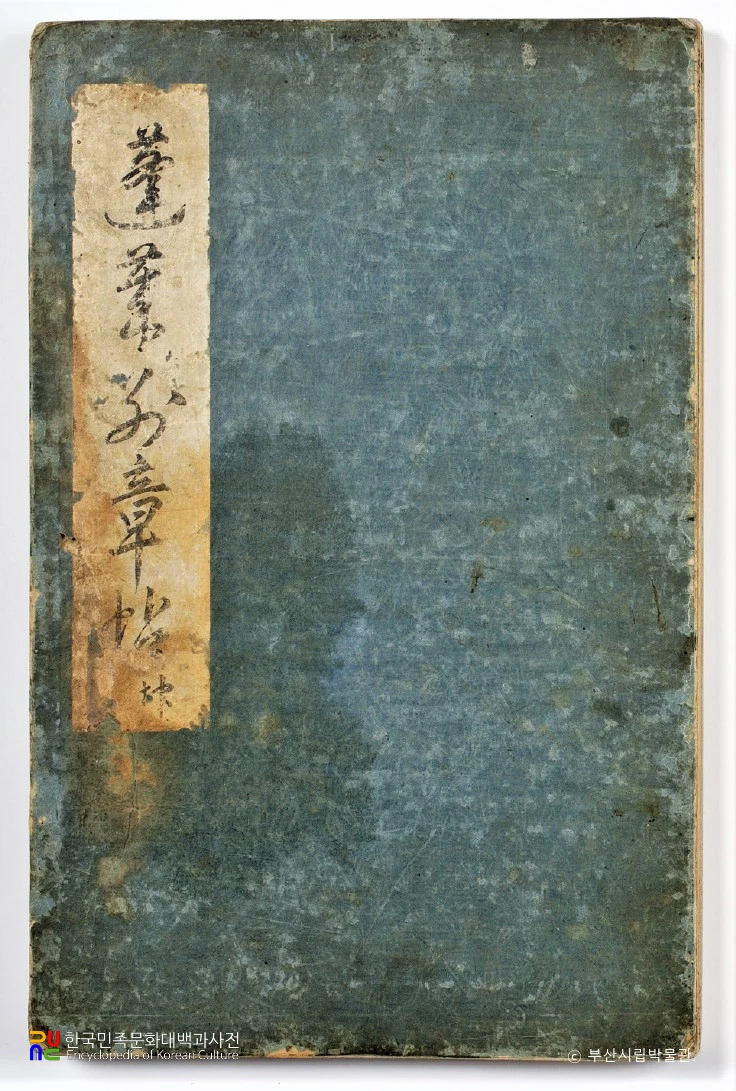 蓬萊別章帖 坤
한국민족문화대백과사전
Encyclopedia of Korean Culture
© 부산시립박물관